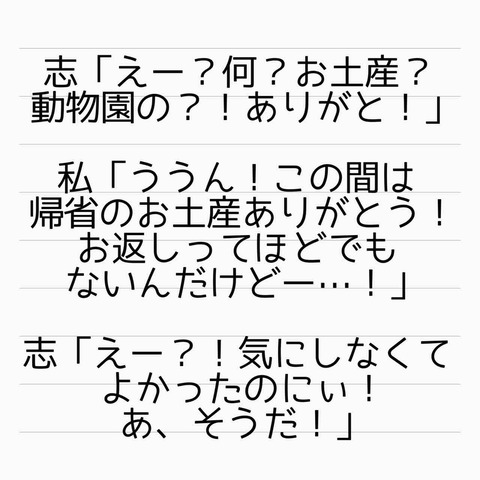 志「えー？何？お土産？
動物園の？！ありがと！」
私「ううん！この間は
帰省のお土産ありがとう！
お返しってほどでも
ないんだけどー…！」
志「えー？！気にしなくて
よかったのにぃ！
あ、そうだ！」